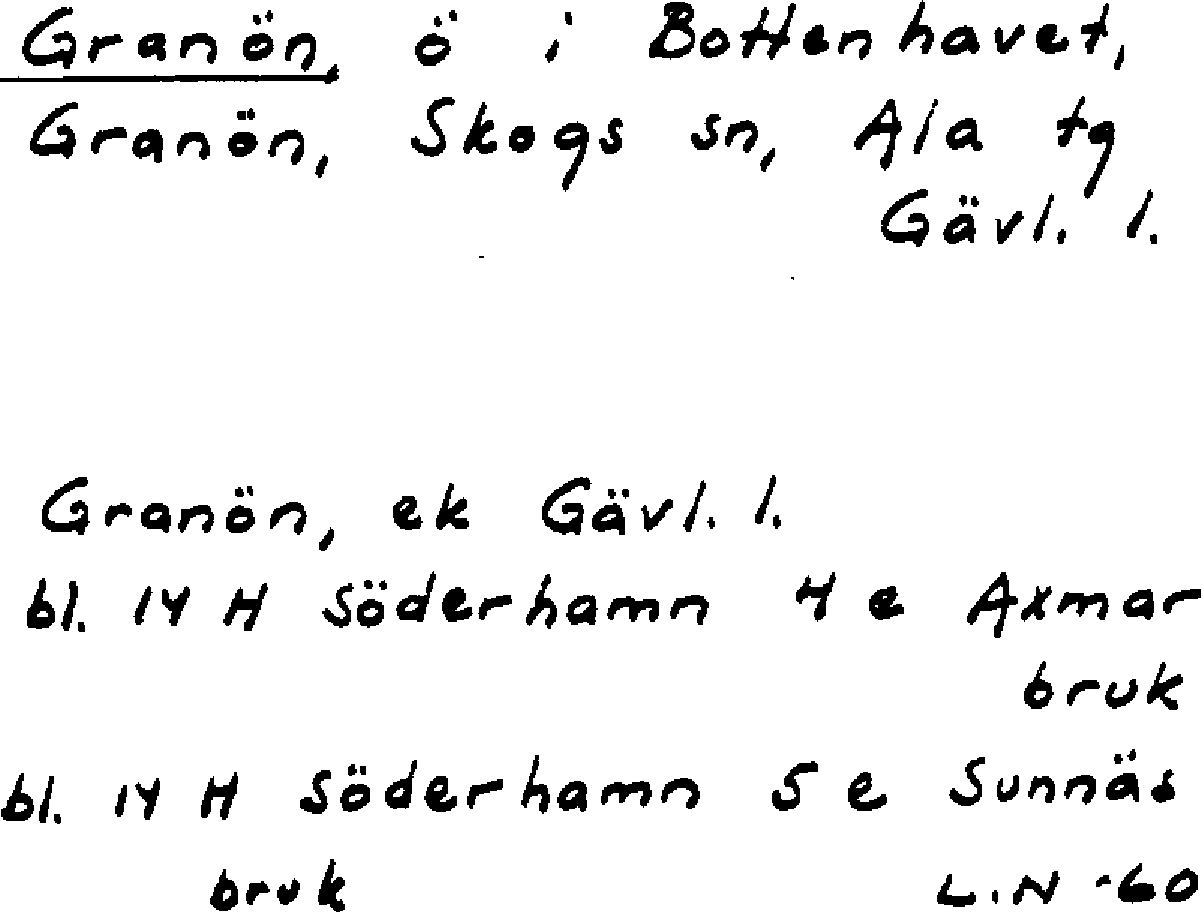 Granön, ö i Bottenhavet,
Granön, Skogs sn, Ala tg
Gävl. l.
Granön, ek Gävl. l.
bl. 14 H Söderhamn 4 e Axmar
bruk
bl. 14 H Söderhamn 5 e Sunnäs
bruk L.N -60